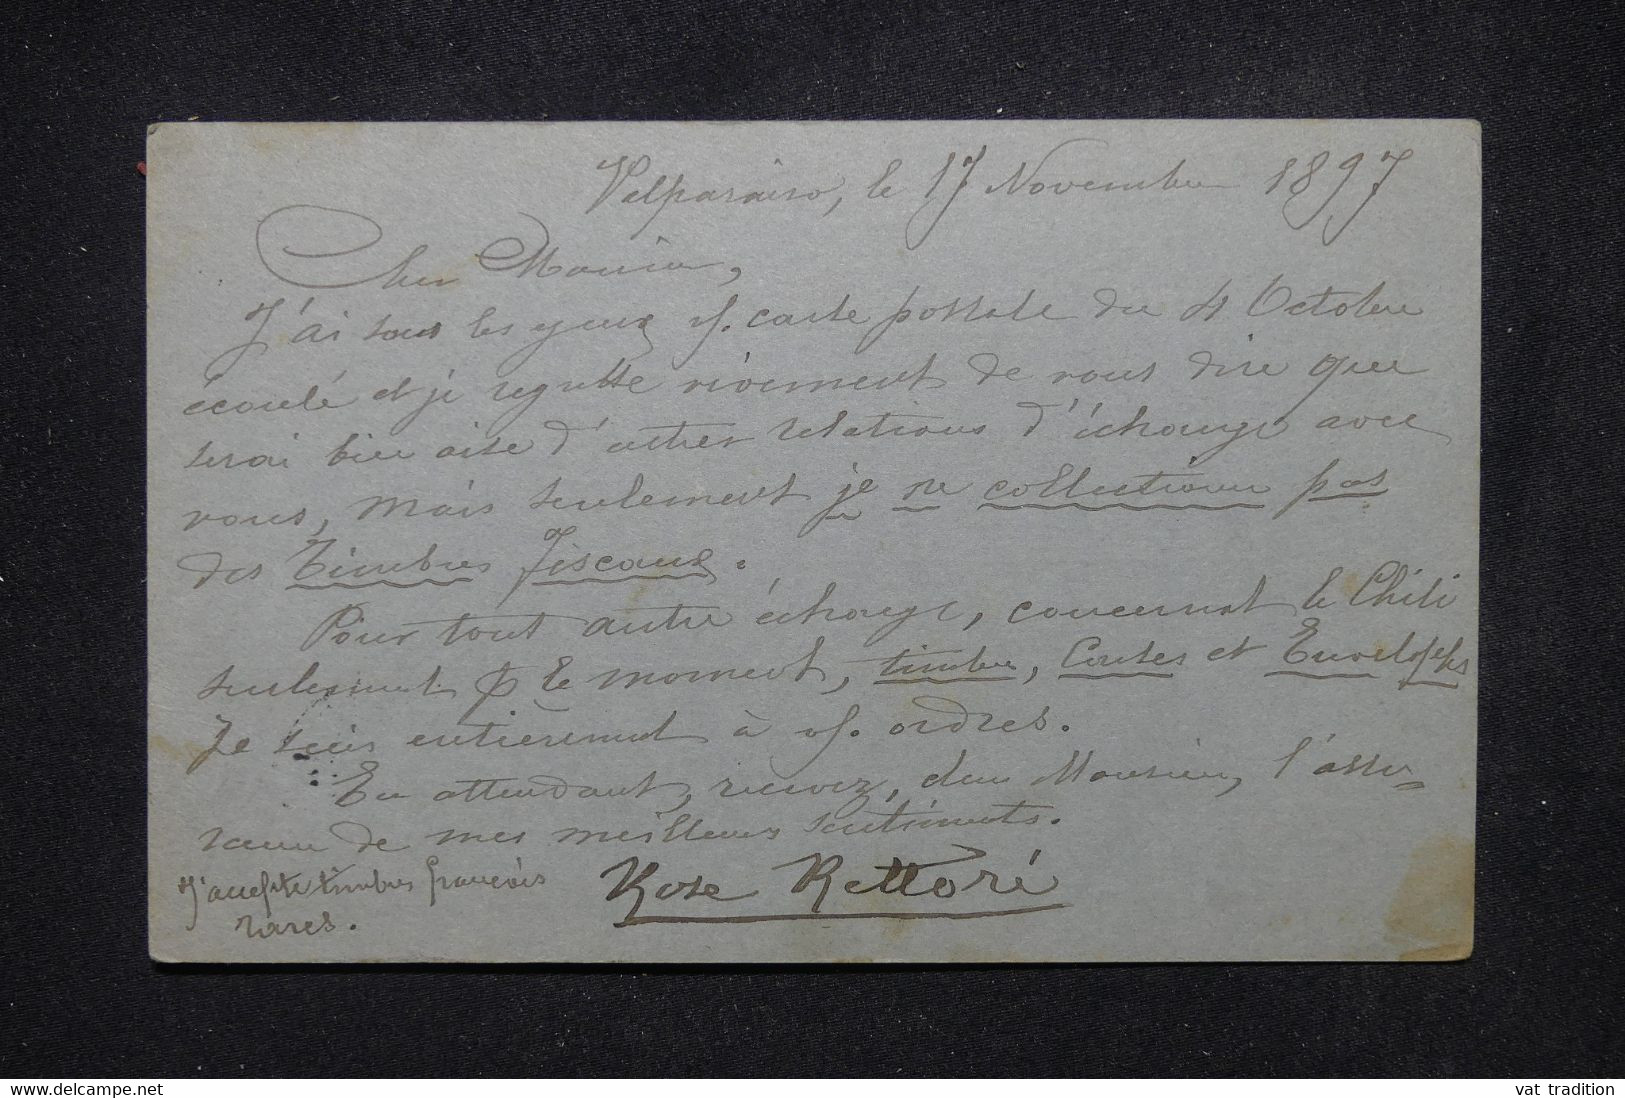 Valparaiso, le 17 Novembre 1897
Cher Monsieur,
J'ai sous les yeux v/. carte postale du 4 Octobre
écoulé et je regrette vivement de vous dire que
serai bien aise d'autres relations d'échange avec
vous, mais seulement je ne collectionne pas
des Timbres Fiscaux.
Pour tout autre échange, concernant le Chili
seulement p le moment, timbres, Cartes et Enveloppes
Je suis entièrement à v/. ordres.
En attendant, recevez, cher Monsieur, l'assu-
rance de mes meilleurs sentiments.
J'accepte timbres français
rares.
Rose Rettoré
delcampe.net
vat tradition